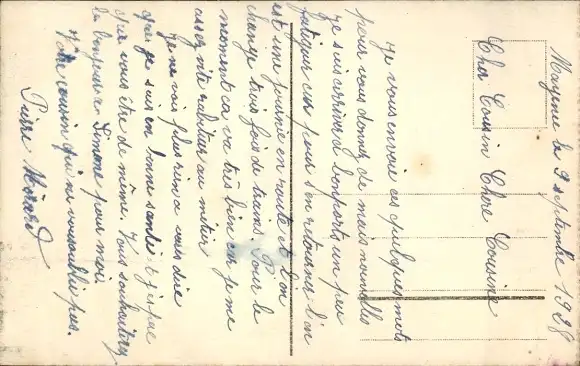 Mayenne le 9 septembre 1938
Cher Cousin Chère Cousine
Je vous envoie ces quelques mots
pour vous donnez de mais nouvelle
Je suis arrivé a bon ports un peu
fatiguer car pour s'en retourner l'on
est une journée en route et l'on
change trois fois de trains. Pour le
moment ca va très bien on je me
assez vite rabituer au métier
Je ne vois plus rien a vous dire
que je suis en bonne santé et j'espère
que vous être de même. Vous souhaiterez
le bonjour a Simone pour moi
Votre cousin qui ne vous oublie pas.
Pierre